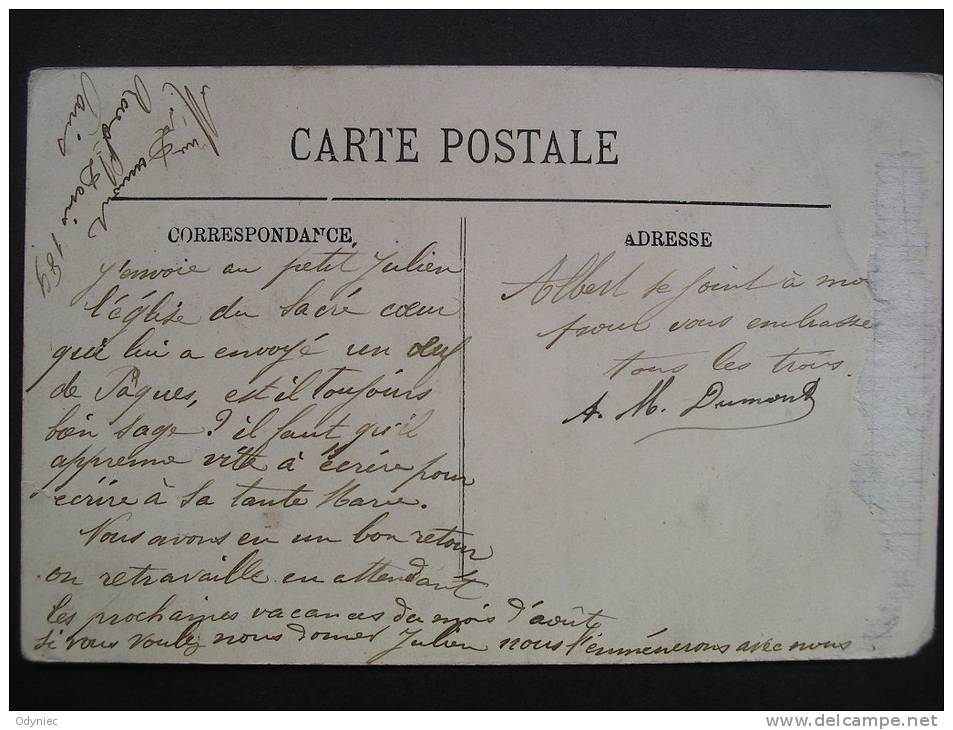 CARTE POSTALE
CORRESPONDANCE
J'envoie au petit Julien
l'église du Sacré cœur
qui lui a envoyé un œuf
de Pâques, est il toujours
bien sage? il faut qu'il
apprenne vite à écrire pour
écrire à sa tante Marie.
Nous avons eu un bon retour
on retravaille en attendant
les prochaines vacances du mois d'août,
si vous voulez nous donner Julien nous l'emmènerons avec nous
ADRESSE
Albert se joint à moi
pour vous embrasser
tous les trois.
A. M. Dumont
Dumont
Paris
189
Odyniec
www.delcampe.net